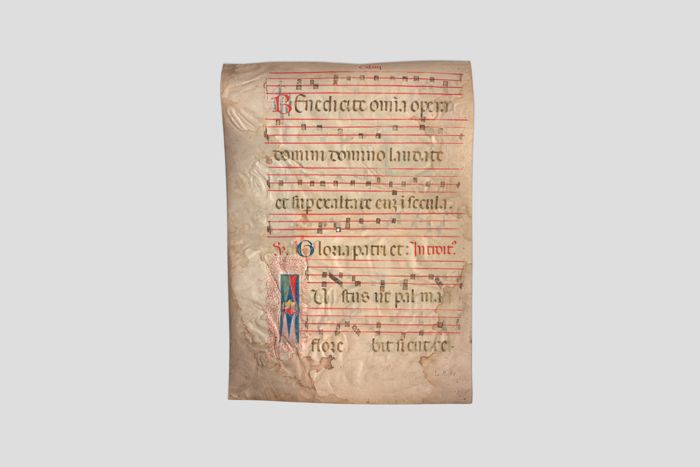 BEnedicite om̄ia opera
domini domino laudate
et sup exaltate eum i secula.
Gloria patri et: Introit⁹.
IUstus ut palma
flore bit sicut ce-